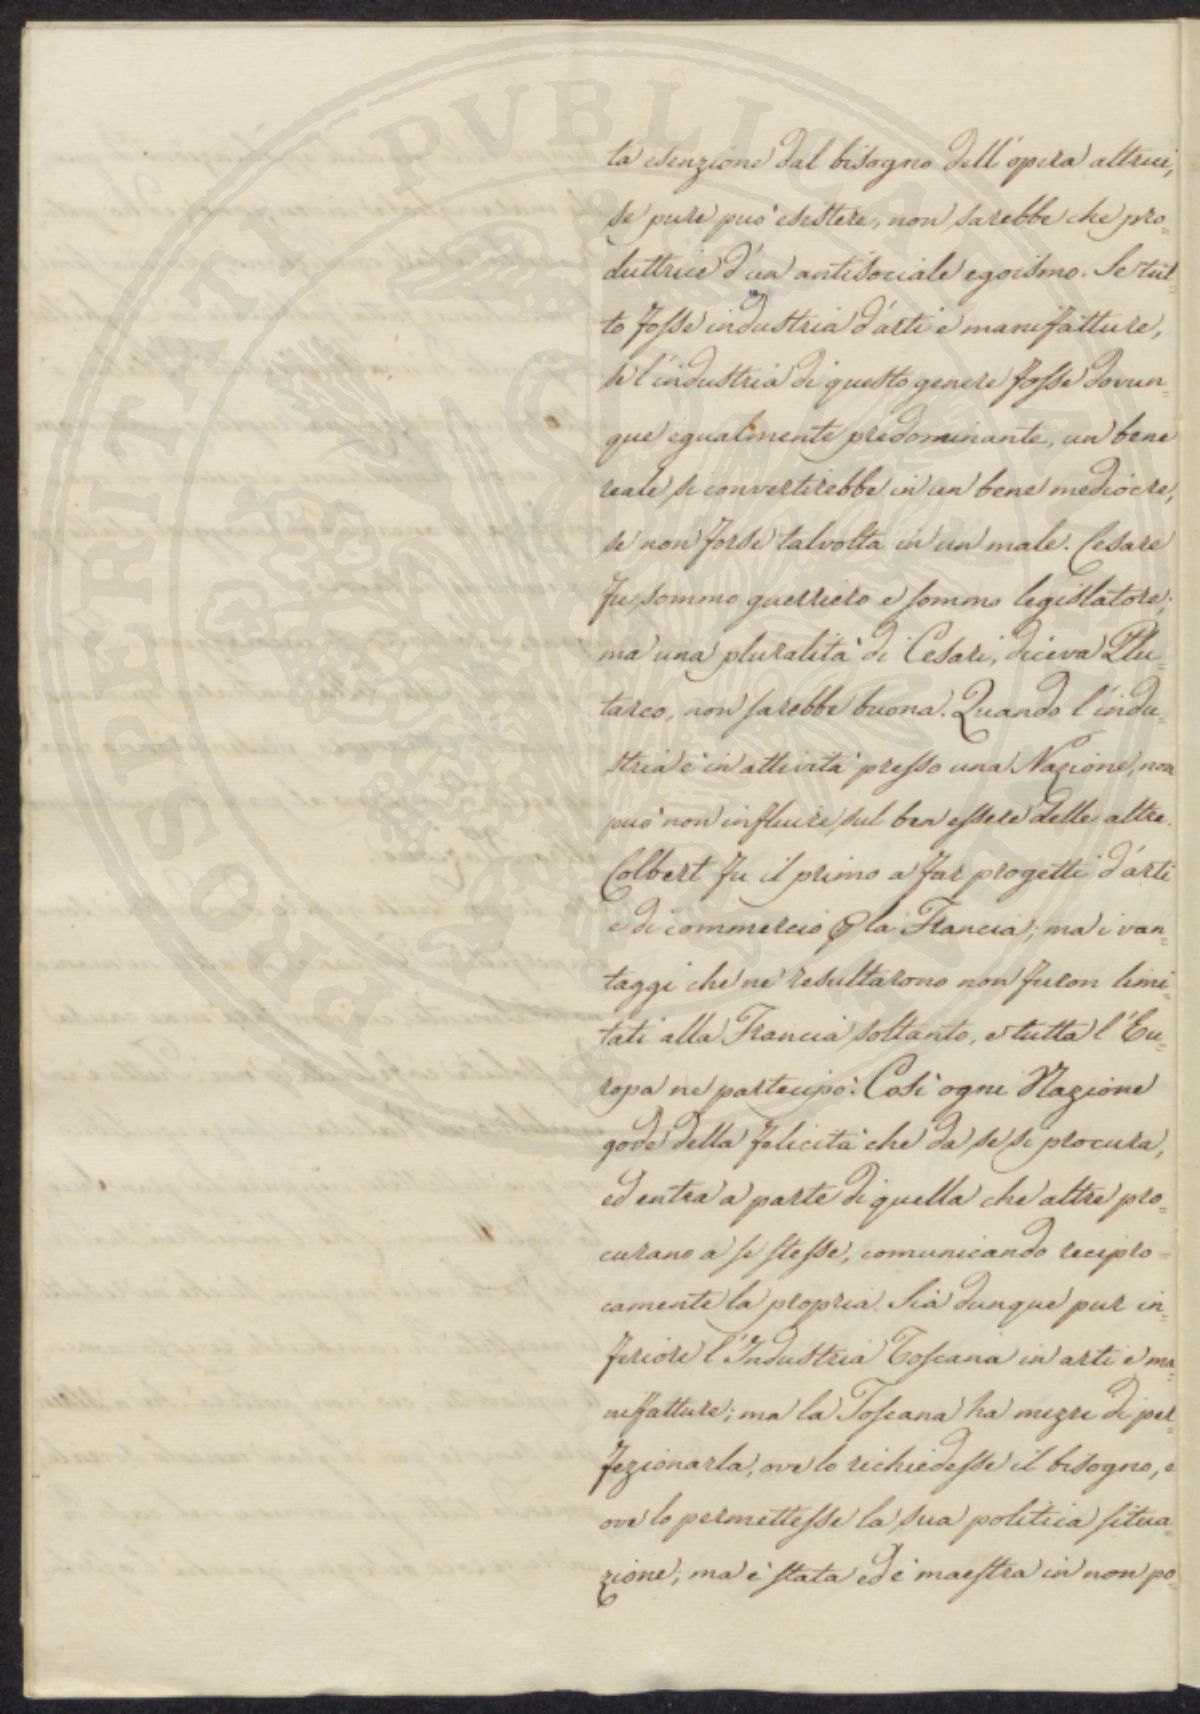 PROSPERITATI PUBLICAE
ta esenzione dal bisogno dell'opera altrui,
se pure può esistere, non sarebbe che pro=
duttrice d'un antisociale egoismo. Se tut=
to fosse industria d'arti e manifatture,
se l'industria di questo genere fosse dovun=
que egualmente predominante, un bene
reale si convertirebbe in un bene mediocre,
se non forse talvolta in un male. Cesare
fu sommo guerriero e sommo legislatore;
ma una pluralità di Cesari, diceva Plu=
tarco, non sarebbe buona. Quando l'indu=
stria è in attività presso una Nazione, non
può non influire sul ben essere delle altre.
Colbert fu il primo a far progetti d'arti
e di commercio p la Francia; ma i van=
taggi che ne resultarono non furon limi=
tati alla Francia soltanto, e tutta l'Eu=
ropa ne partecipò: Così ogni Nazione
gode della felicità che da se si procura,
ed entra a parte di quella che altre pro=
curano a se stesse, comunicando recipro=
camente la propria. Sia dunque pur in=
feriore l'Industria Toscana in arti e ma=
nifatture; ma la Toscana ha mezzi di per=
fezionarla, ove lo richiedesse il bisogno, e
ove lo permettesse la sua politica situa=
zione; ma è stata ed è maestra in non po=